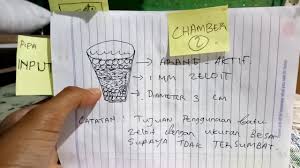 PIPA
INPUT
CHAMBER
2
ARANG AKTIF
1 MM ZELOIT
DIAMETER 3 CM
CATATAN : TUJUAN PENGGUNAAN BATU
ZELOID DENGAN UKURAN BESAR
SUPAYA TDAK TERSUMBAT.